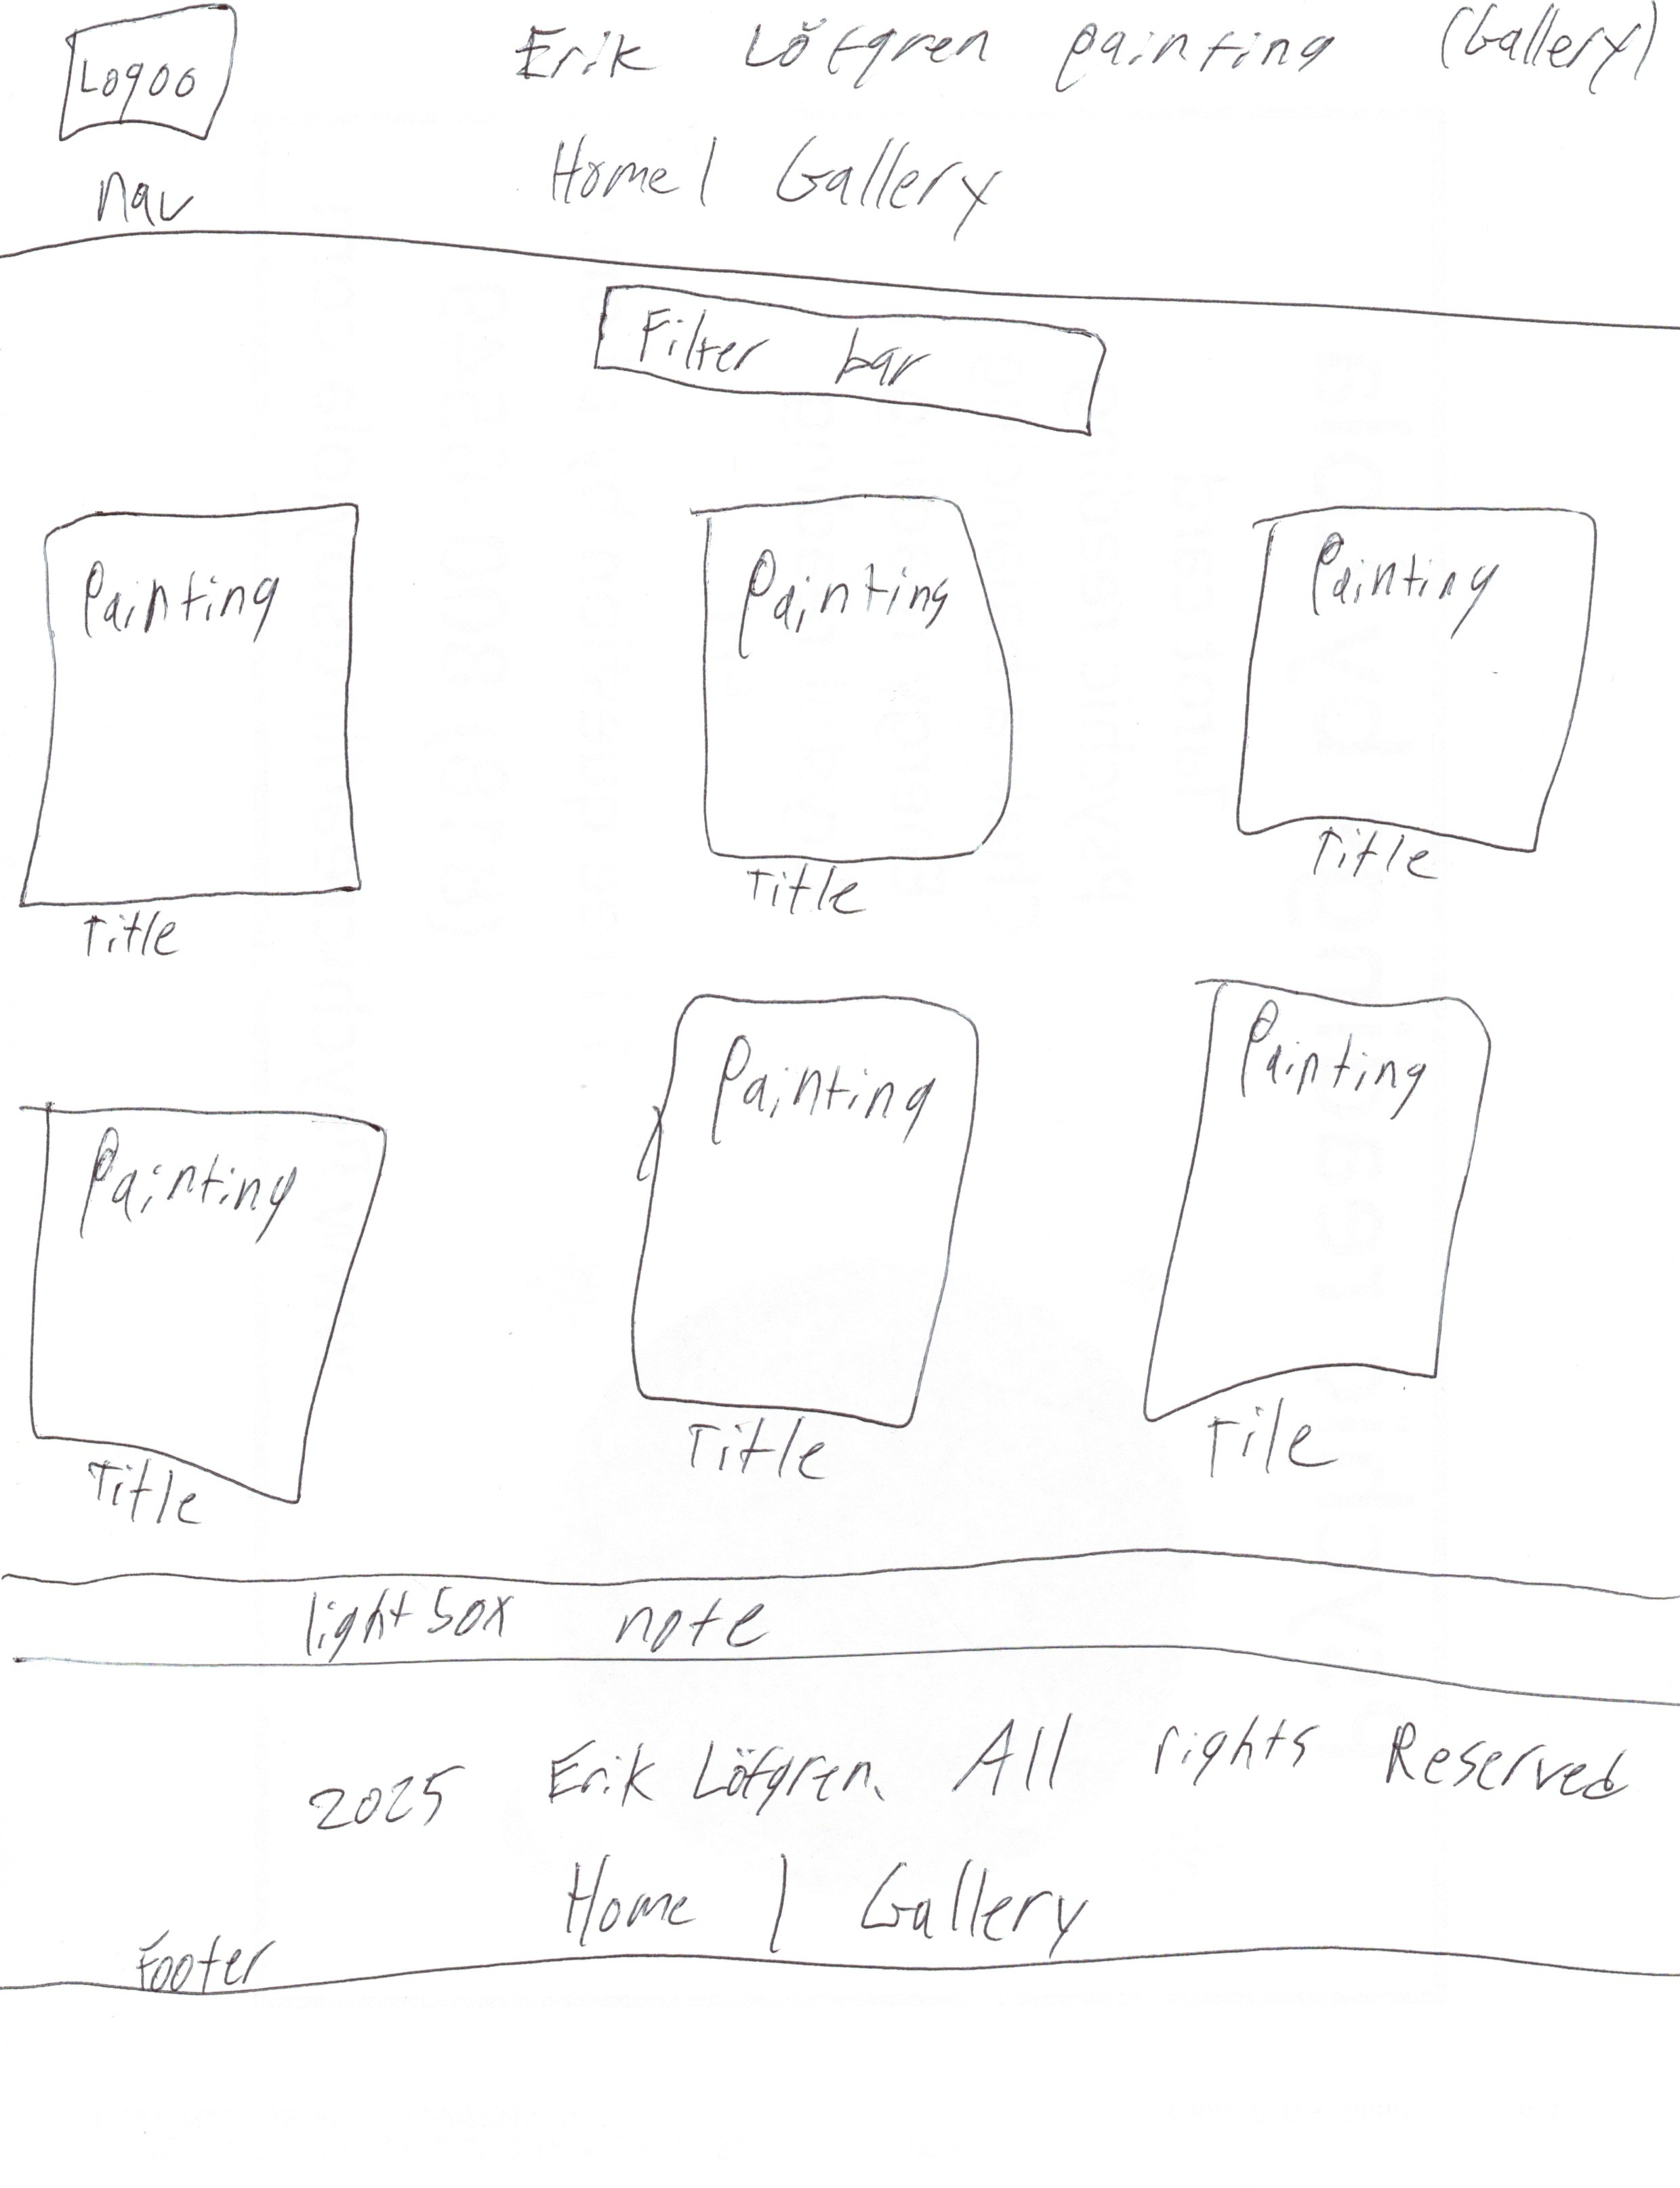 Logoo
Erik Löfgren painting (Gallery)
Home | Gallery
nav
Filter bar
Painting
Painting
Painting
Title
Title
Title
Painting
Painting
Painting
Title
Title
Tile
light5ox note
2025 Erik Löfgren. All rights Reserved
Home | Gallery
Footer